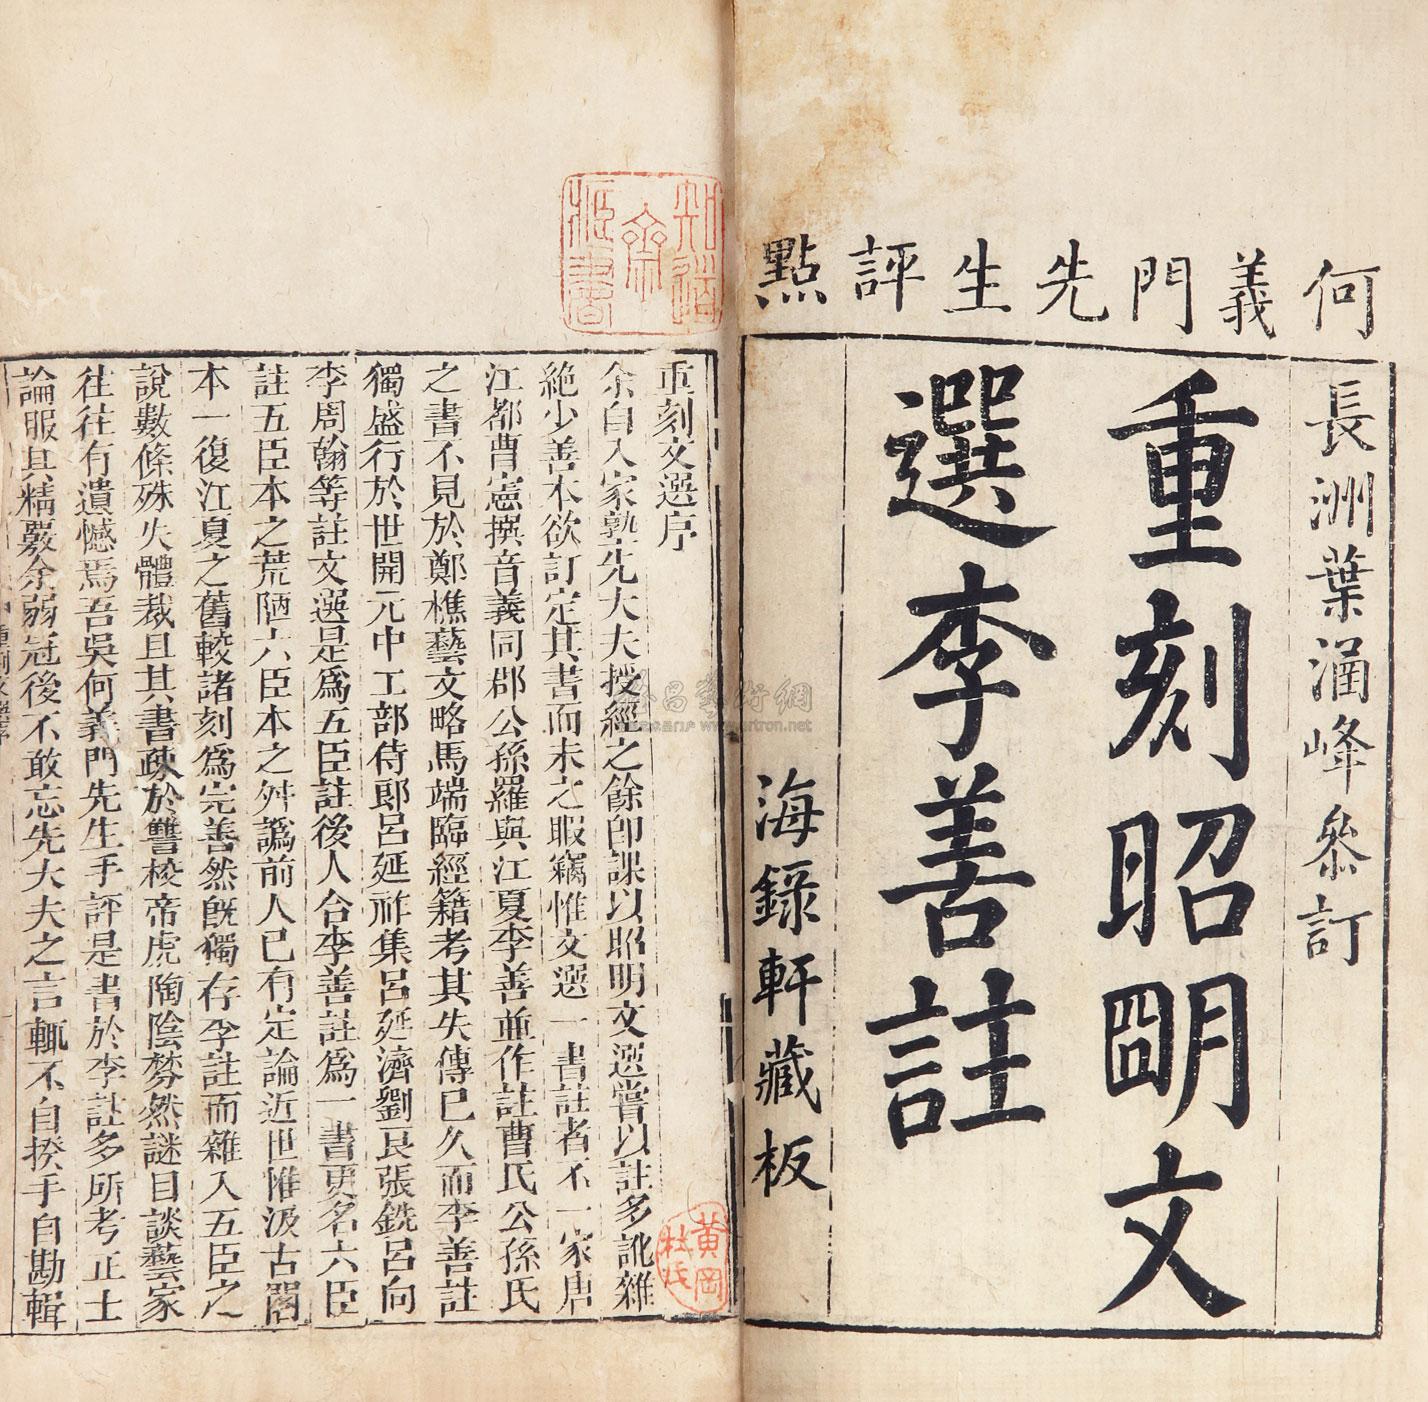 何義門先生評點
長洲葉涵峰參訂
重刻昭明文
選李善註
海錄軒藏板
重刻文選序
余自入家塾先大夫授經之餘即課以昭明文選嘗以註多訛雜
絶少善本欲訂定其書而未之暇竊惟文選一書註者不一家唐
江都曹憲撰音義同郡公孫羅與江夏李善並作註曹氏公孫氏
之書不見於鄭樵藝文略馬端臨經籍考其失傳已久而李善註
獨盛行於世開元中工部侍郎呂延祚集呂延濟劉良張銑呂向
李周翰等註文選是爲五臣註後人合李善註爲一書更名六臣
註五臣本之荒陋六臣本之舛譌前人已有定論近世惟汲古閣
本一復江夏之舊較諸刻爲完善然旣獨存李註而雜入五臣之
說數條殊失體裁且其書疎於讐校帝虎陶陰棼然謎目談藝家
往往有遺憾焉吾吳何義門先生手評是書於李註多所考正士
論服其精覈余弱冠後不敢忘先大夫之言輒不自揆手自勘輯
知道齋藏書
黃岡杜氏
artron.net